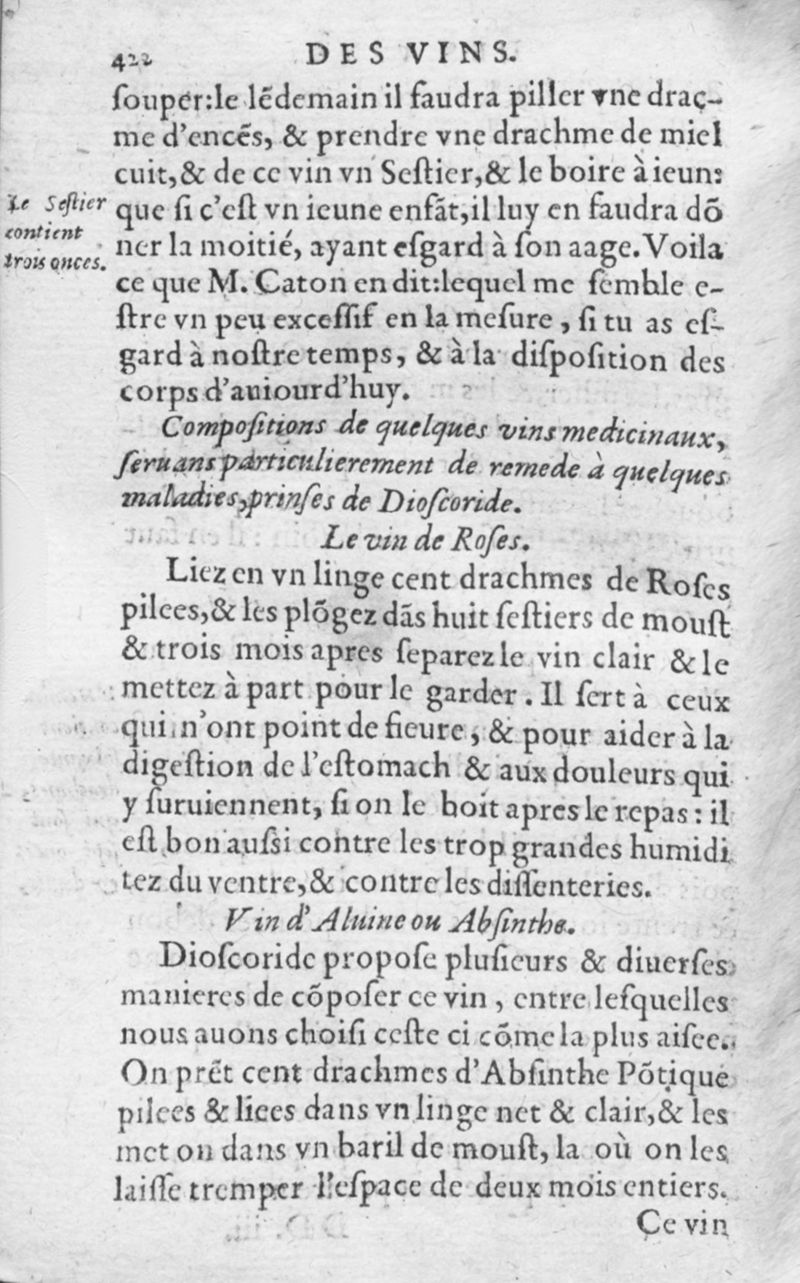 422 DES VINS.
ſouper:le lẽdemain il faudra piller vne drac-
me d'encẽs, & prendre vne drachme de miel
cuit,& de ce vin vn Seſtier,& le boire à ieun:
que ſi c'eſt vn ieune enfãt,il luy en faudra dõ
ner la moitié, ayant eſgard à ſon aage. Voila
ce que M. Caton en dit:lequel me ſemble e-
ſtre vn peu exceſſif en la meſure, ſi tu as eſ-
gard à noſtre temps, & à la diſpoſition des
corps d'auiourd'huy.
Le Seſtier
contient
trois onces.
Compoſitions de quelques vins medicinaux,
ſeruans particulierement de remede à quelques
maladies, prinſes de Dioſcoride.
Le vin de Roſes.
Liez en vn linge cent drachmes de Roſes
pilees,& les plõgez dãs huit ſeſtiers de mouſt
& trois mois apres ſeparez le vin clair & le
mettez à part pour le garder. Il ſert à ceux
qui n'ont point de fieure, & pour aider à la
digeſtion de l'eſtomach & aux douleurs qui
y ſuruiennent, ſi on le boit apres le repas: il
eſt bon auſsi contre les trop grandes humidi
tez du ventre,& contre les diſſenteries.
Vin d'Aluine ou Abſinthe.
Dioſcoride propoſe pluſieurs & diuerſes
manieres de cõpoſer ce vin, entre leſquelles
nous auons choiſi ceſte ci cõme la plus aiſee.
On prẽt cent drachmes d'Abſinthe Põtique
pilees & liees dans vn linge net & clair,& les
met on dans vn baril de mouſt, la où on les
laiſſe tremper l'eſpace de deux mois entiers.
Ce vin